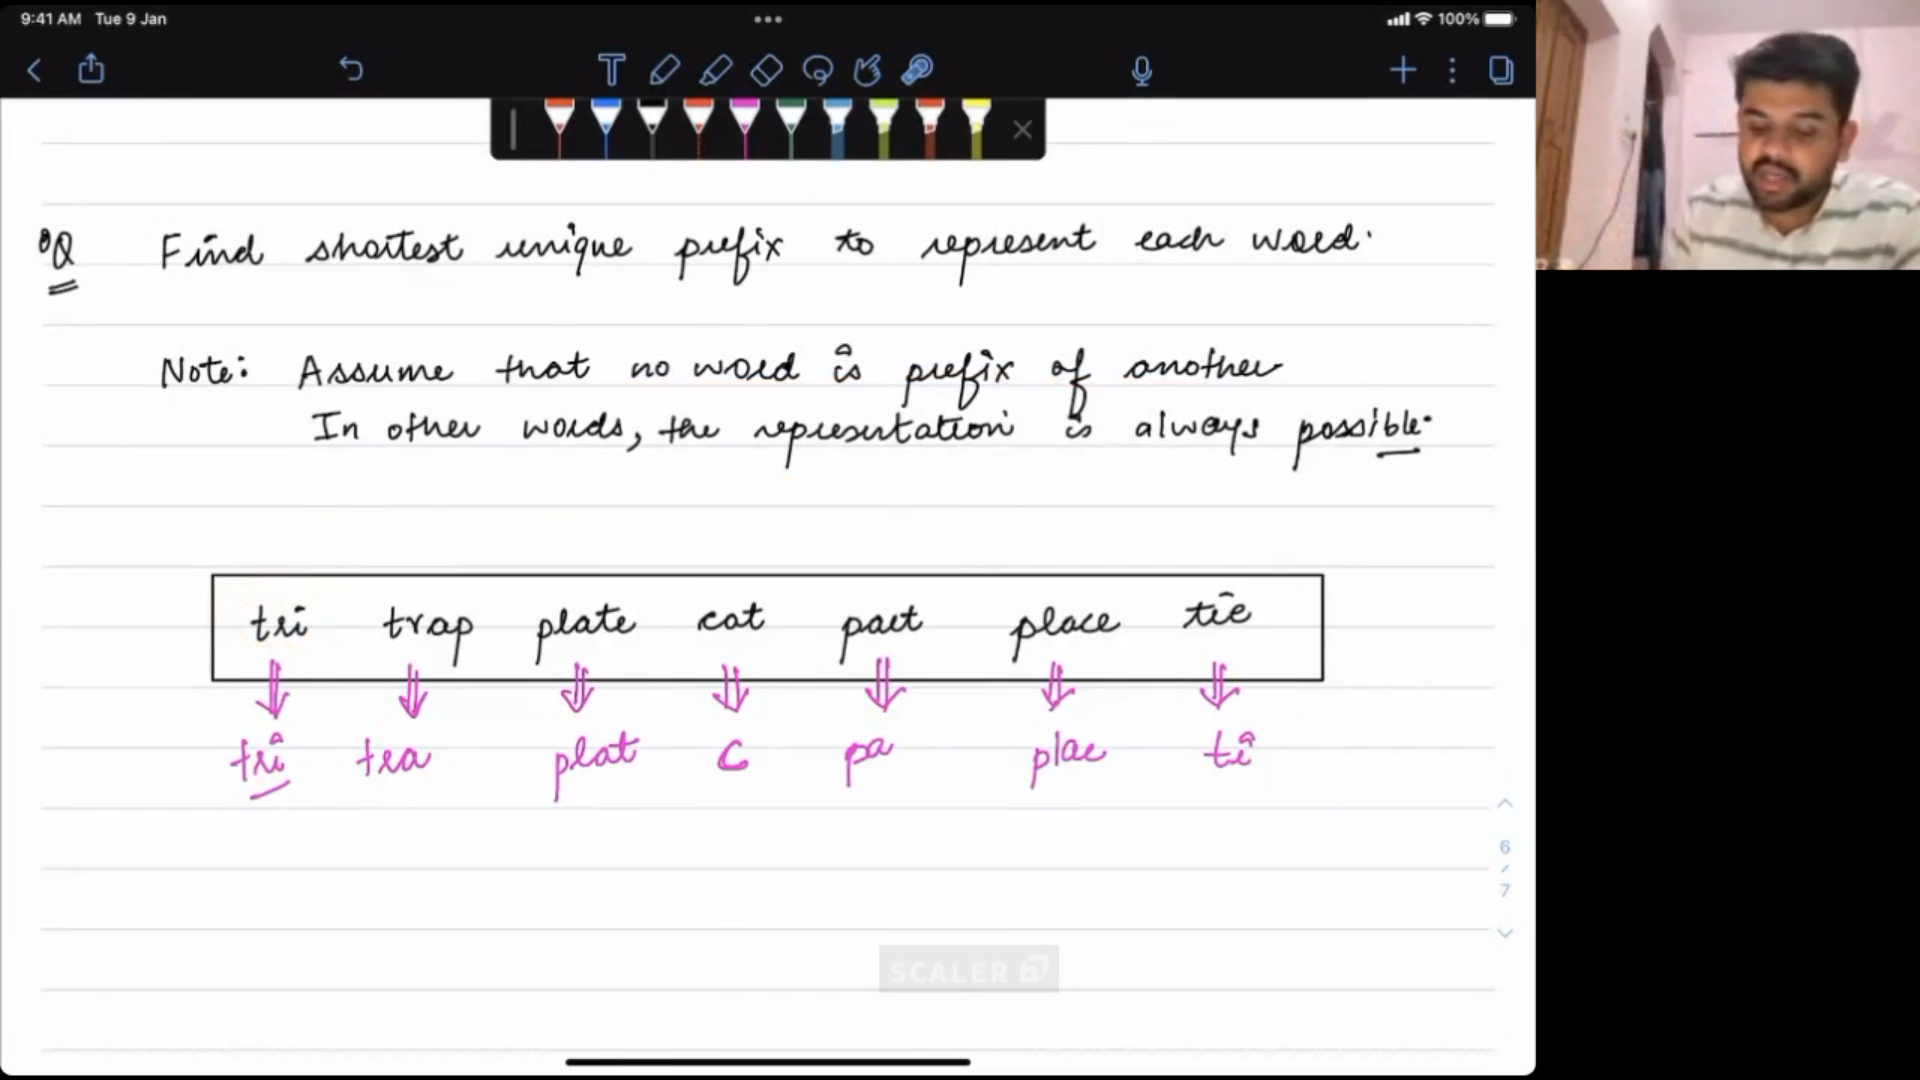 9:41 AM Tue 9 Jan
100%
Q Find shortest unique prefix to represent each word.
Note: Assume that no word is prefix of another
In other words, the representation is always possible.
tri trap plate cat part place tie
tri tra plat c pa plac ti
6
/
7
SCALER